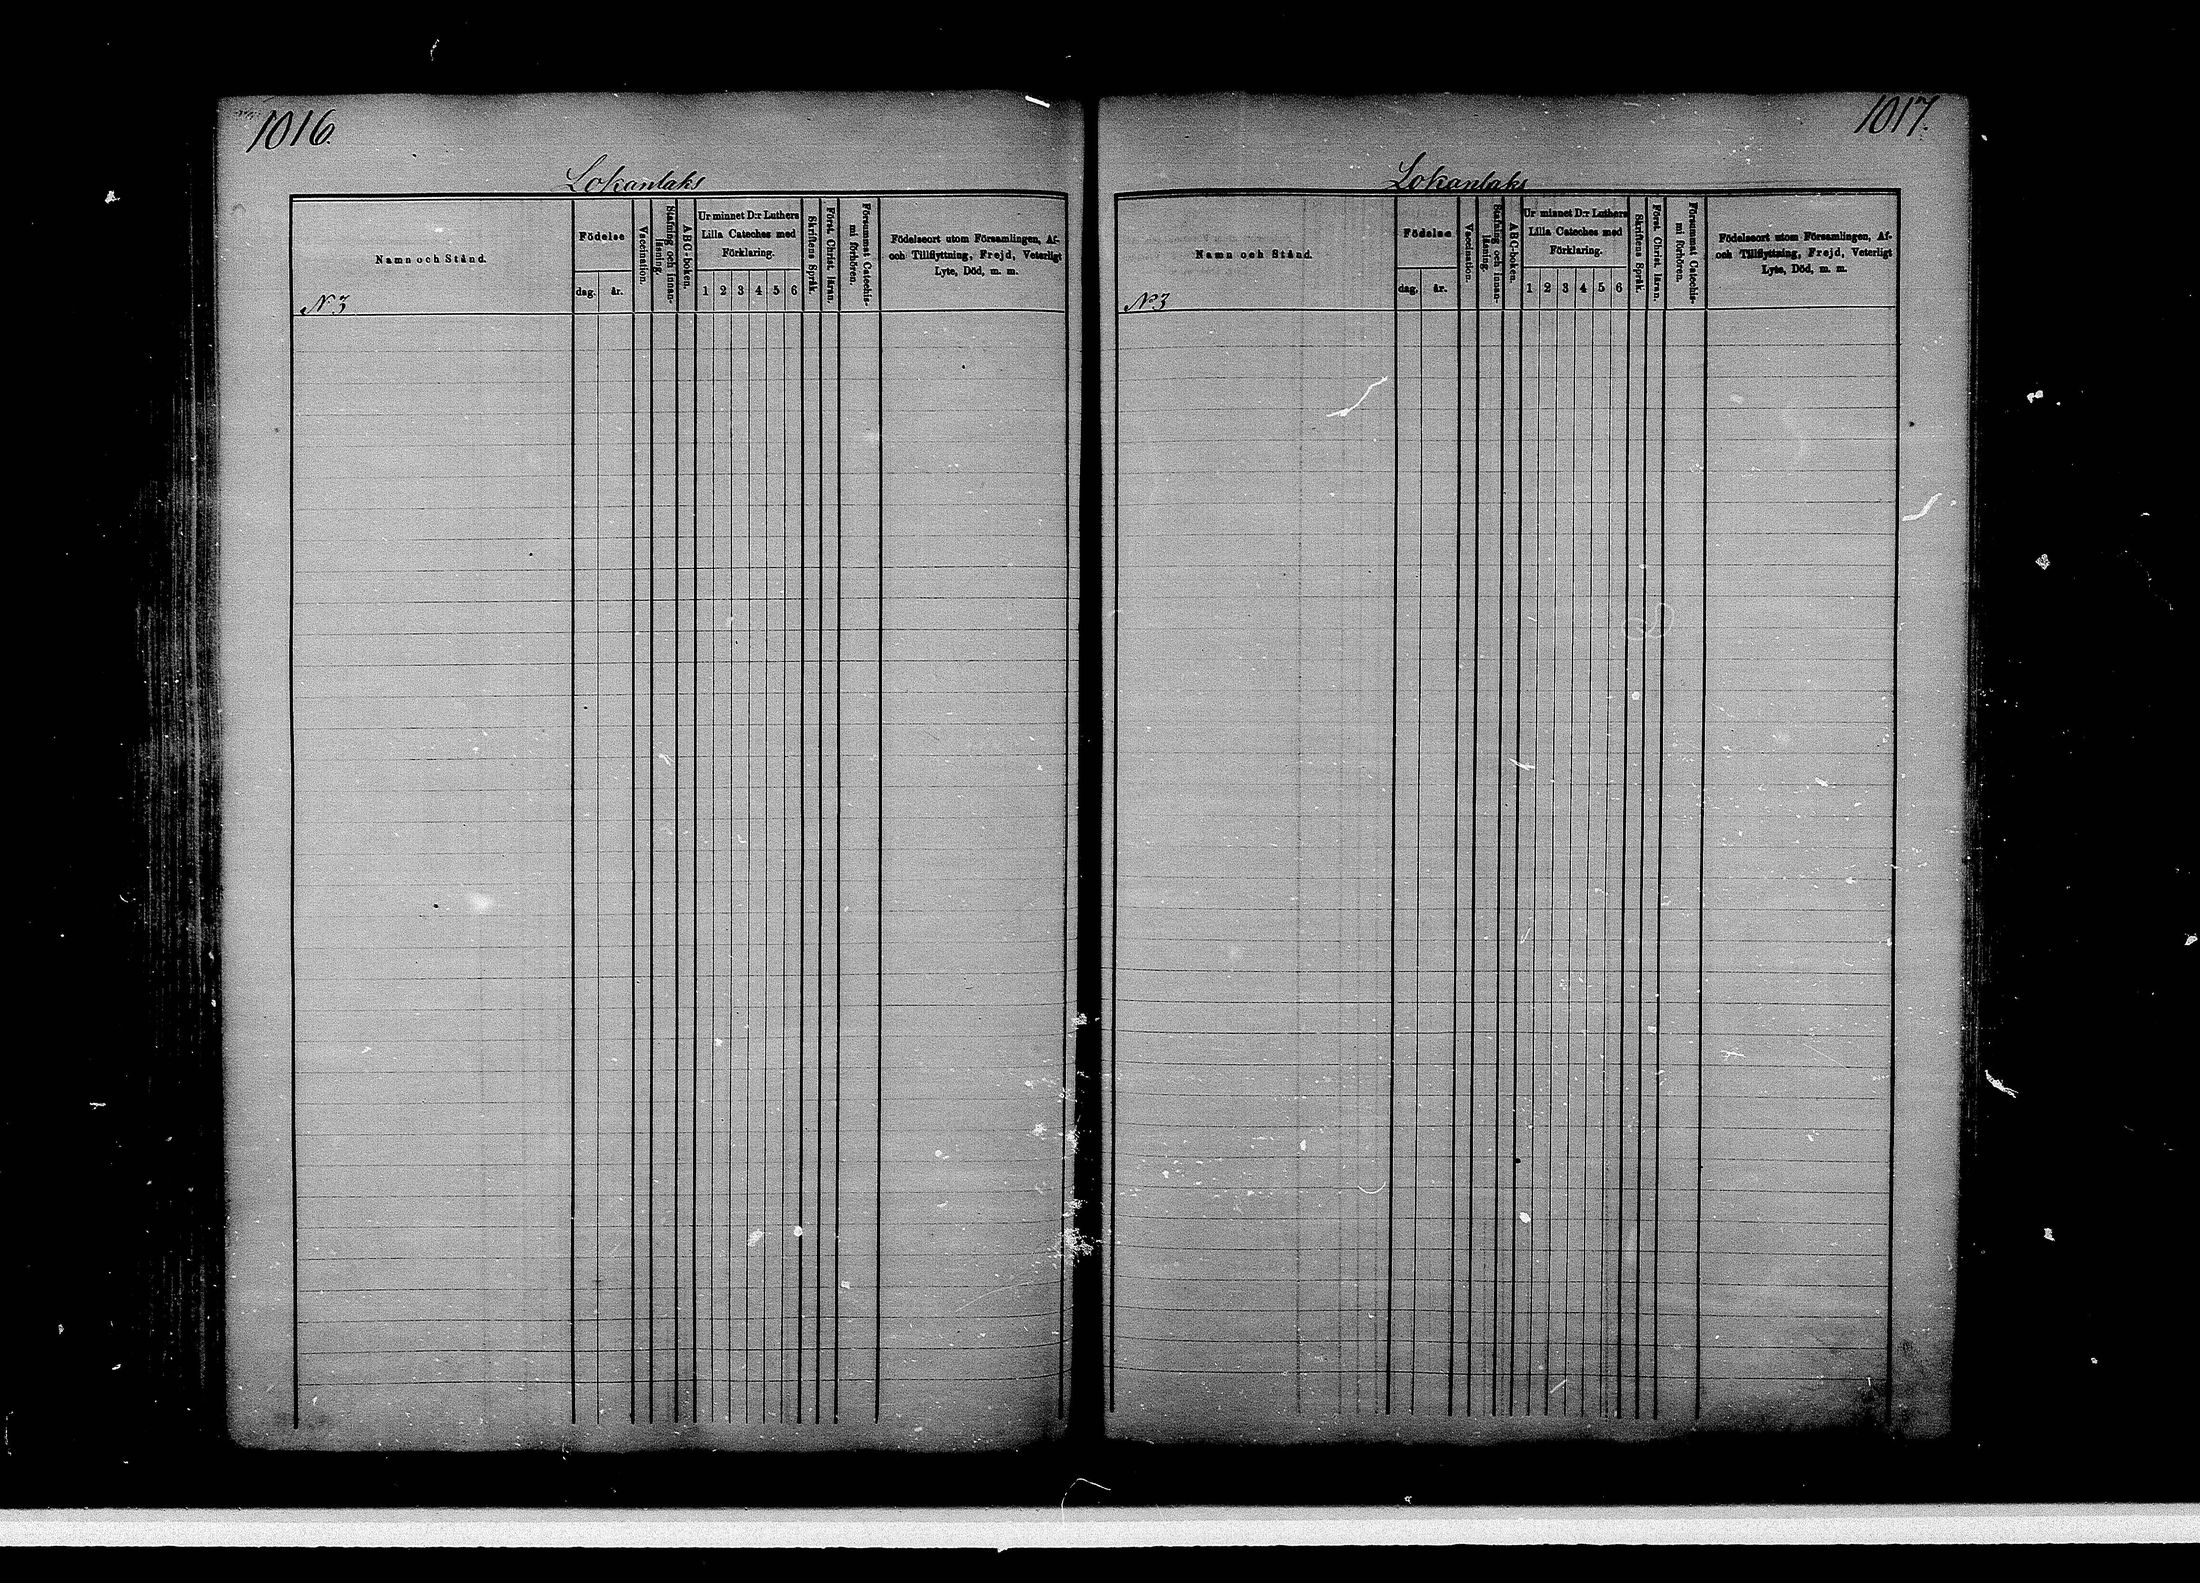 1016.
Lokanlaks
Namn och Stånd.
N 3
Födelse
dag. år.
Vaccination.
Stafning och innan-
läsning.
ABC-boken.
Ur minnet D:r Luthers
Lilla Cateches med
Förklaring.
1 2 3 4 5 6
Skriftens Språk.
Först. Christ. läran.
Försummat Catechis-
mi förhören.
Födelseort utom Församlingen, Af-
och Tillflyttning, Frejd, Veterligt
Lyte, Död, m. m.
1017.
Lokanlaks
Namn och Stånd.
N 3
Födelse
dag. år.
Vaccination.
Stafning och innan-
läsning.
ABC-boken.
Ur minnet D:r Luthers
Lilla Cateches med
Förklaring.
1 2 3 4 5 6
Skriftens Språk.
Först. Christ. läran.
Försummat Catechis-
mi förhören.
Födelseort utom Församlingen, Af-
och Tillflyttning, Frejd, Veterligt
Lyte, Död, m. m.